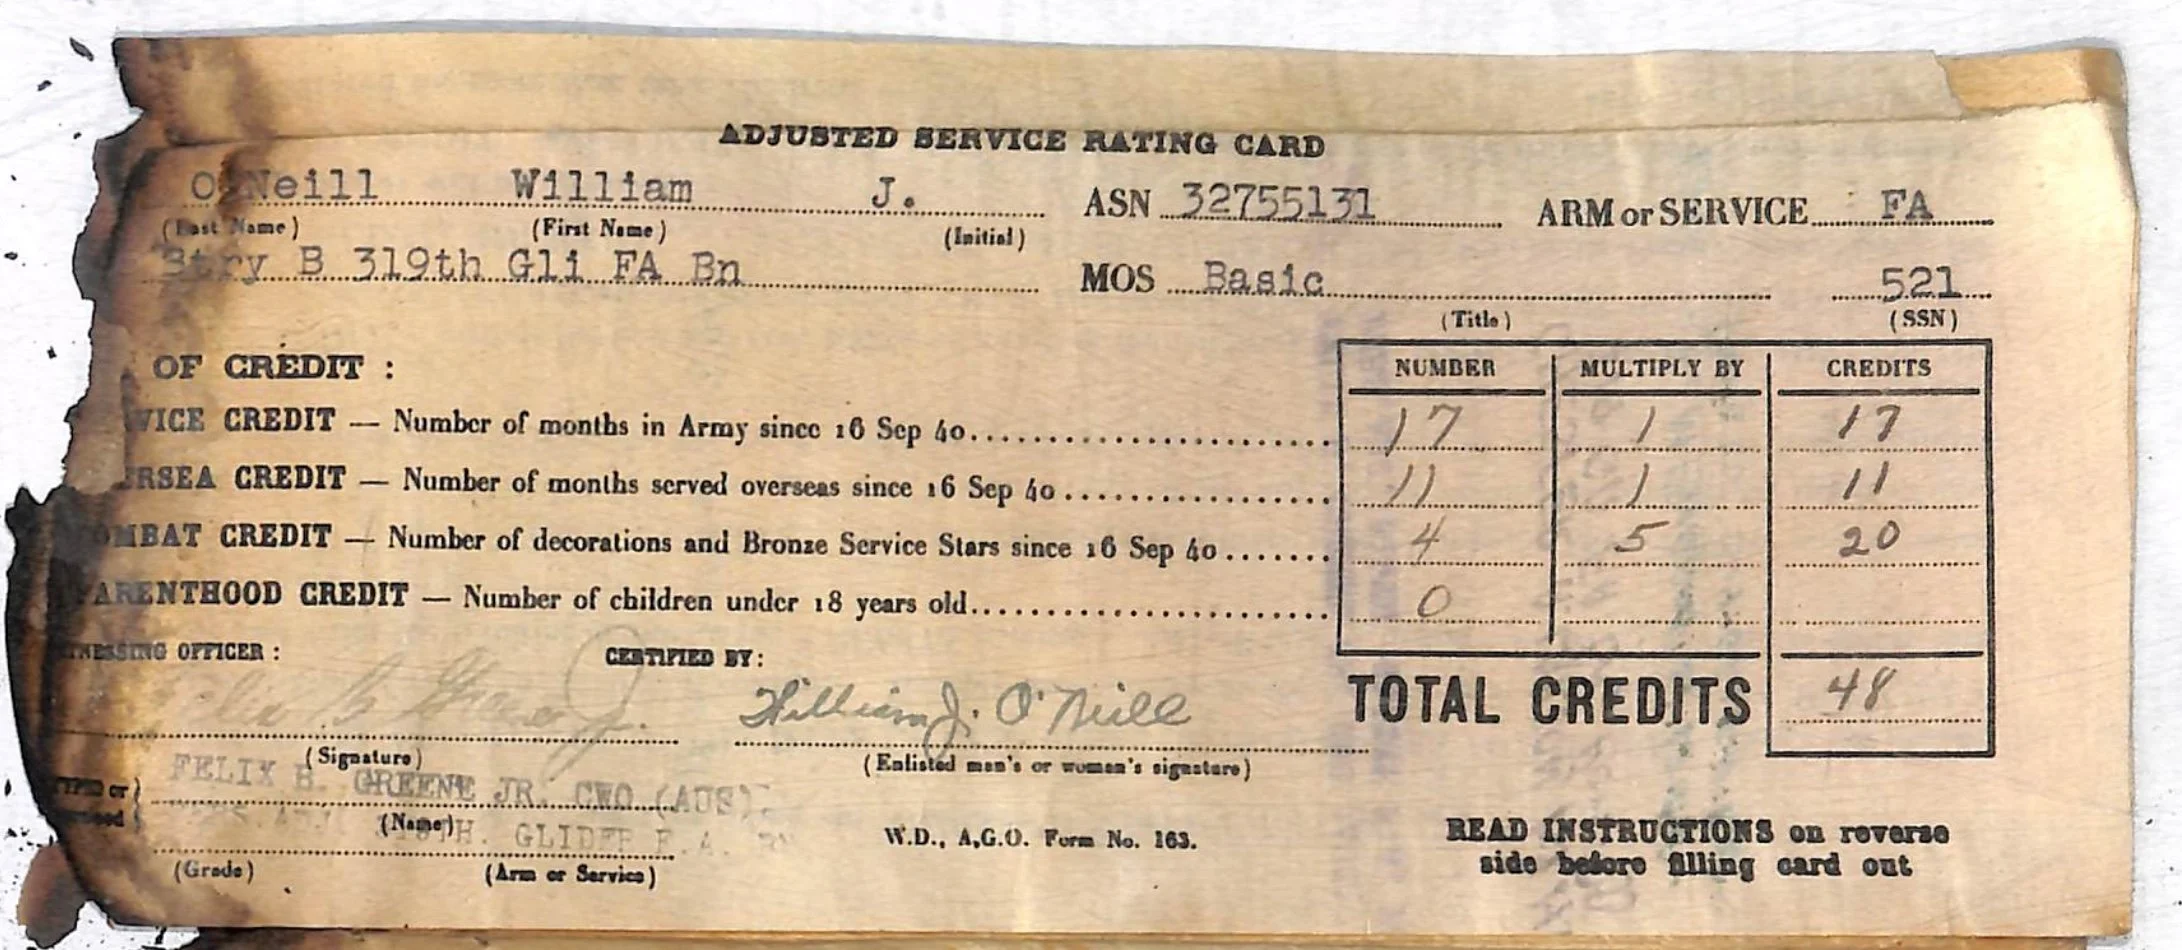 ADJUSTED SERVICE RATING CARD
O'Neill William J. ASN 32755131 ARM or SERVICE FA
(Last Name) (First Name) (Initial)
Btry B 319th Gli FA Bn MOS Basic 521
(Title) (SSN)
OF CREDIT : NUMBER MULTIPLY BY CREDITS
VICE CREDIT — Number of months in Army since 16 Sep 40 17 1 17
RSEA CREDIT — Number of months served overseas since 16 Sep 40 11 1 11
OMBAT CREDIT — Number of decorations and Bronze Service Stars since 16 Sep 40 4 5 20
PARENTHOOD CREDIT — Number of children under 18 years old 0
TNESSING OFFICER : CERTIFIED BY :
B Greene Jr. William J. O'Neill TOTAL CREDITS 48
(Signature) (Enlisted man's or woman's signature)
FELIX B. GREENE JR. CWO (AUS).
TYPED or
(Name) W.D., A.G.O. Form No. 163. READ INSTRUCTIONS on reverse
319TH. GLIDER F.A. BN side before filling card out
(Grade) (Arm or Service)